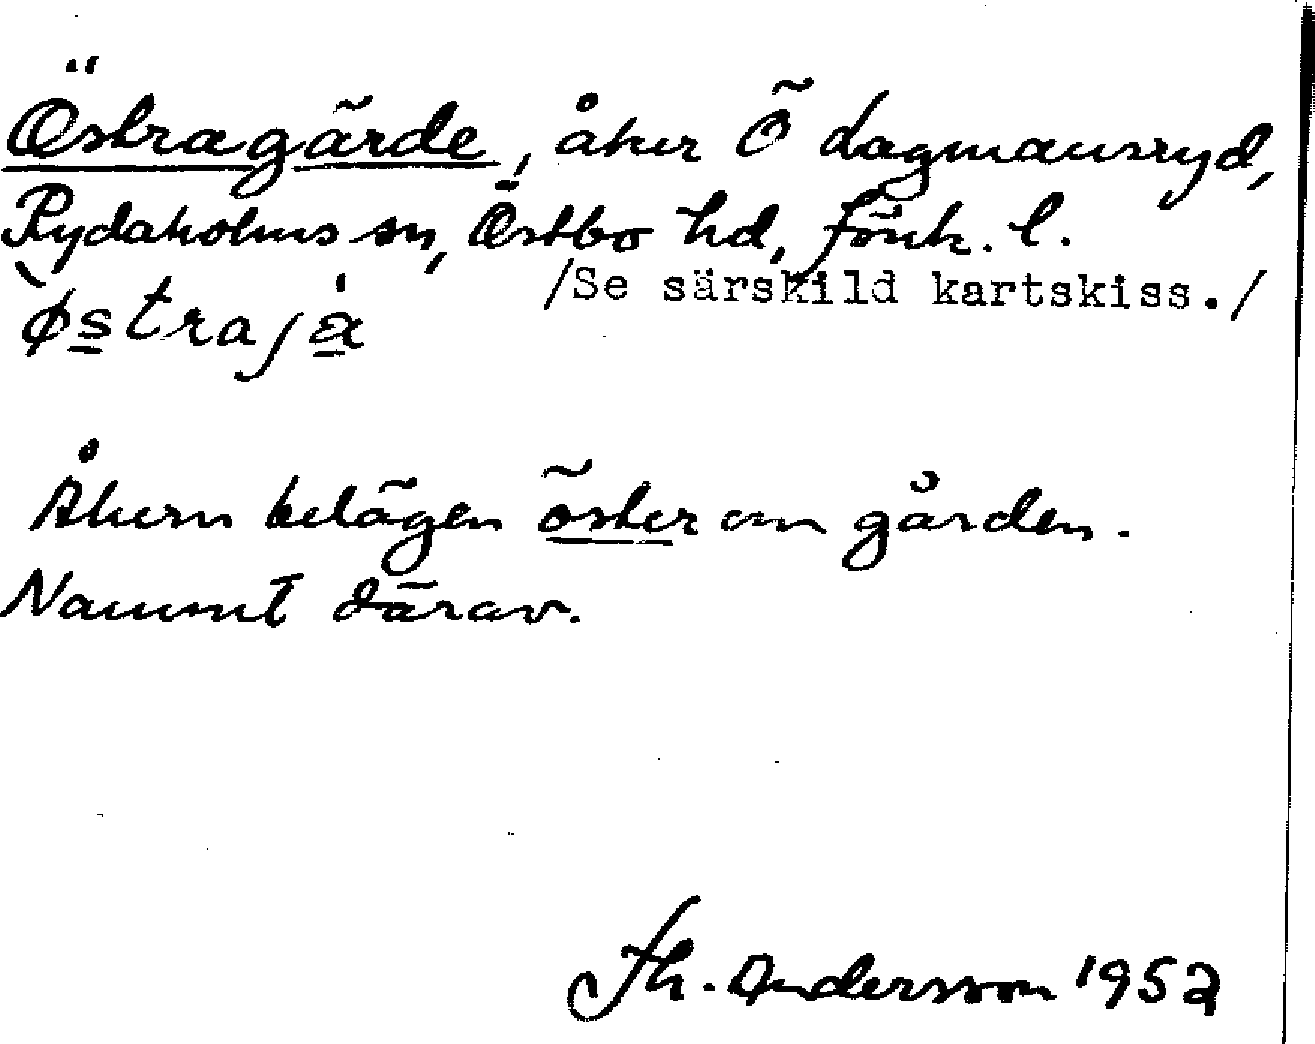 Östragärde, åker Ö Lagmansryd,
Rydaholms sn, Östbo hd, Jönk. l.
/Se särskild kartskiss./
Åkern belägen öster om gården.
Namnet därav.
Th. Andersson 1952